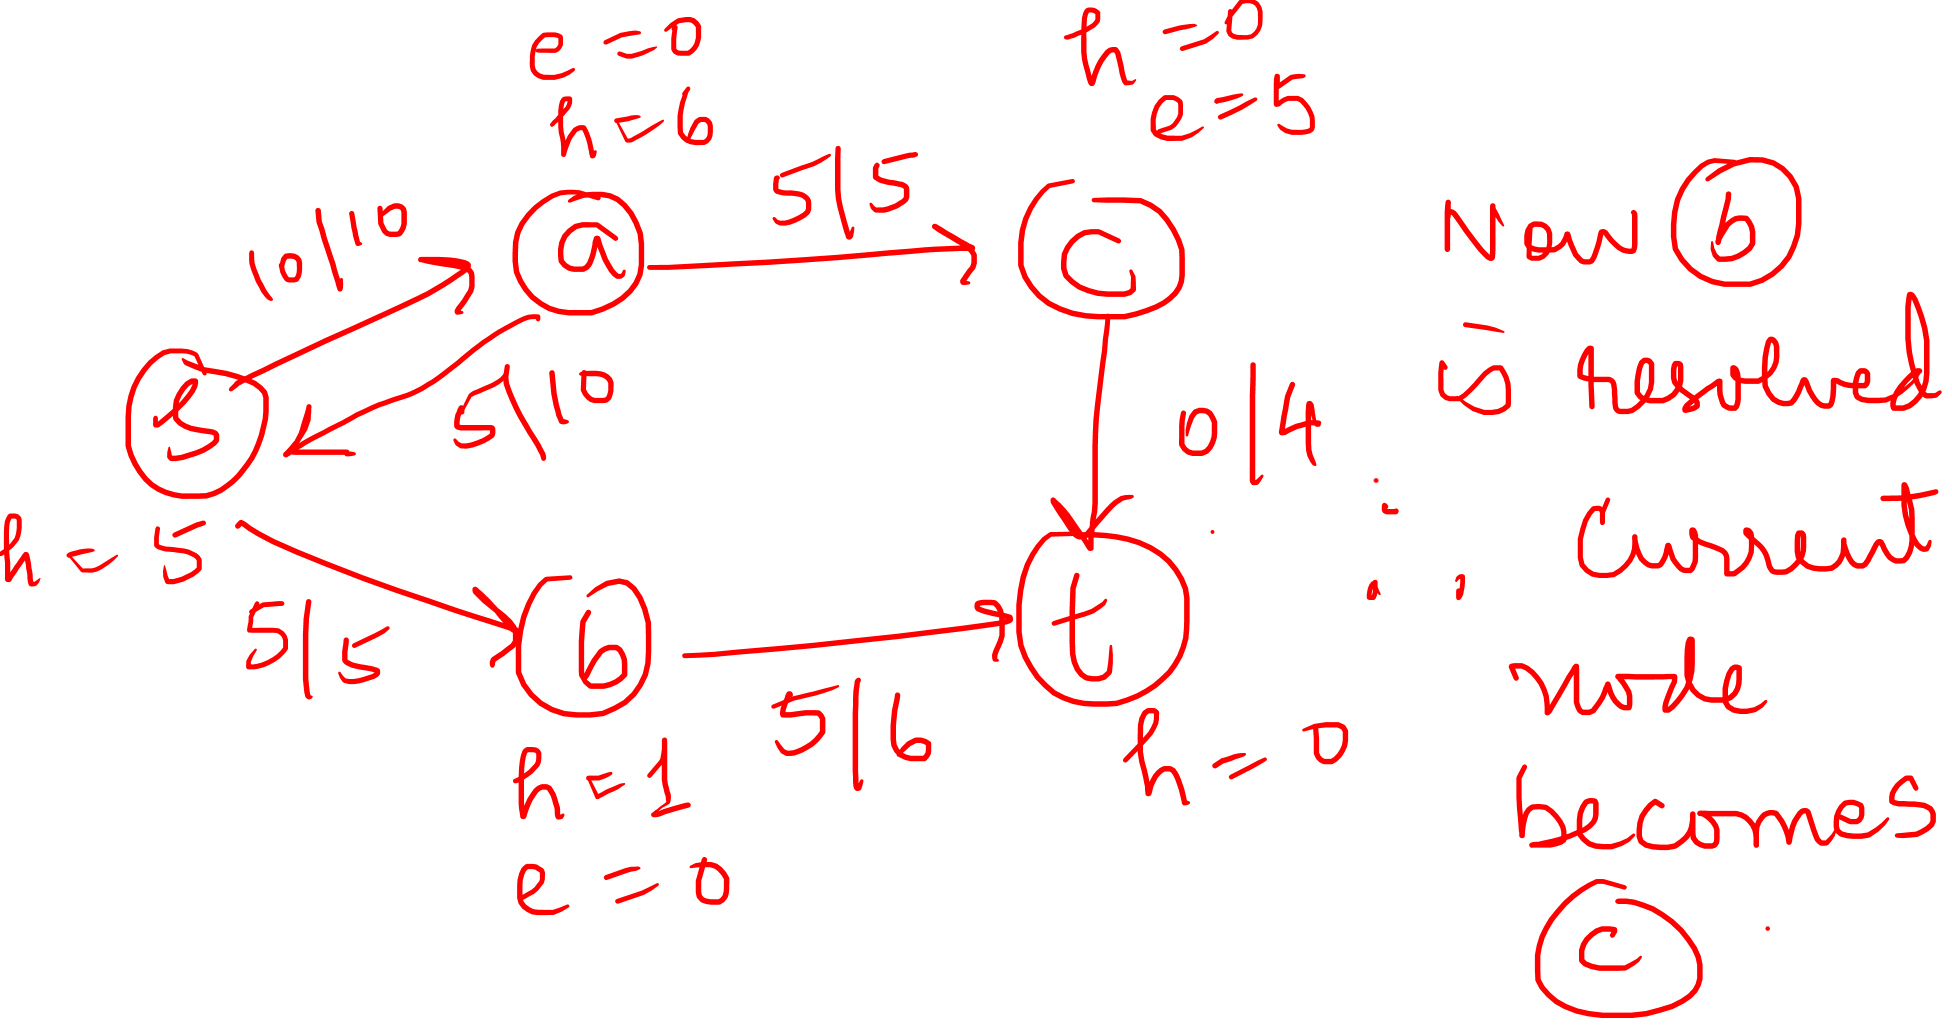 e = 0
h = 6
h = 0
e = 5
10/10
a
5/5
c
s
5/10
0/4
h = 5
5/5
b
5/6
t
h = 1
e = 0
h = 0
Now b
is resolved
∴ Current
node
becomes
c